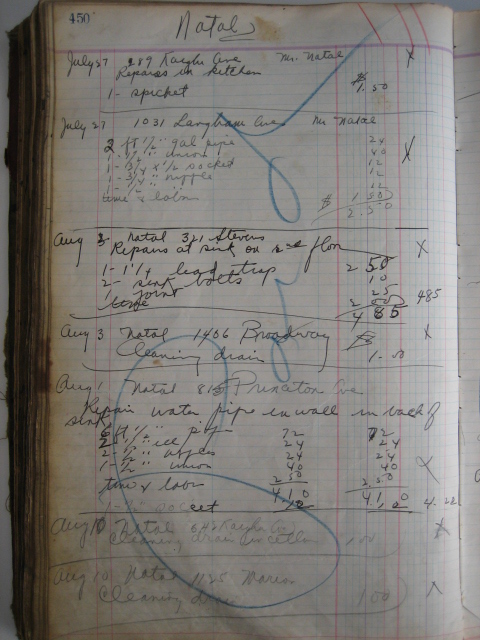 450
Natal
July 27 189 Kaighn Ave Mr. Natal X
Repairs in kitchen
1- spicket $1.50
July 27 1031 Langham Ave Mr Natal
2 ft 1/2" gal pipe 24
1- 1/2" union 40
1- 3/4 x 1/2 socket 12
1- 3/4" nipple 12
12 X
time & labor 1 50
$ 2.50
Aug 3- Natal 321 Stevens
Repairs at sink on 2nd floor X
1- 1 1/4 lead trap 2 50
2- sink bolts 10
1 joint 25
time 2 00 485
4 85
Aug 3 Natal 1406 Broadway $ X
Cleaning drain 1-00
Aug 1 Natal 815 Princeton Ave
Repair water pipe in wall in back of
sink
6 ft 1/2" pipe 72 72
2 1/2" ell 24 24
2- 1/2" nipples 24 24
1- 1/2" union 40 40 X
time & labor 2 50 2 50
4 10 4 10
1- socket 12 12 4.22
Aug 10 Natal Kaighn Ave X
Cleaning drain in cellar 1 00
Aug 10 Natal 1125 Marion X
Cleaning drain 1 00